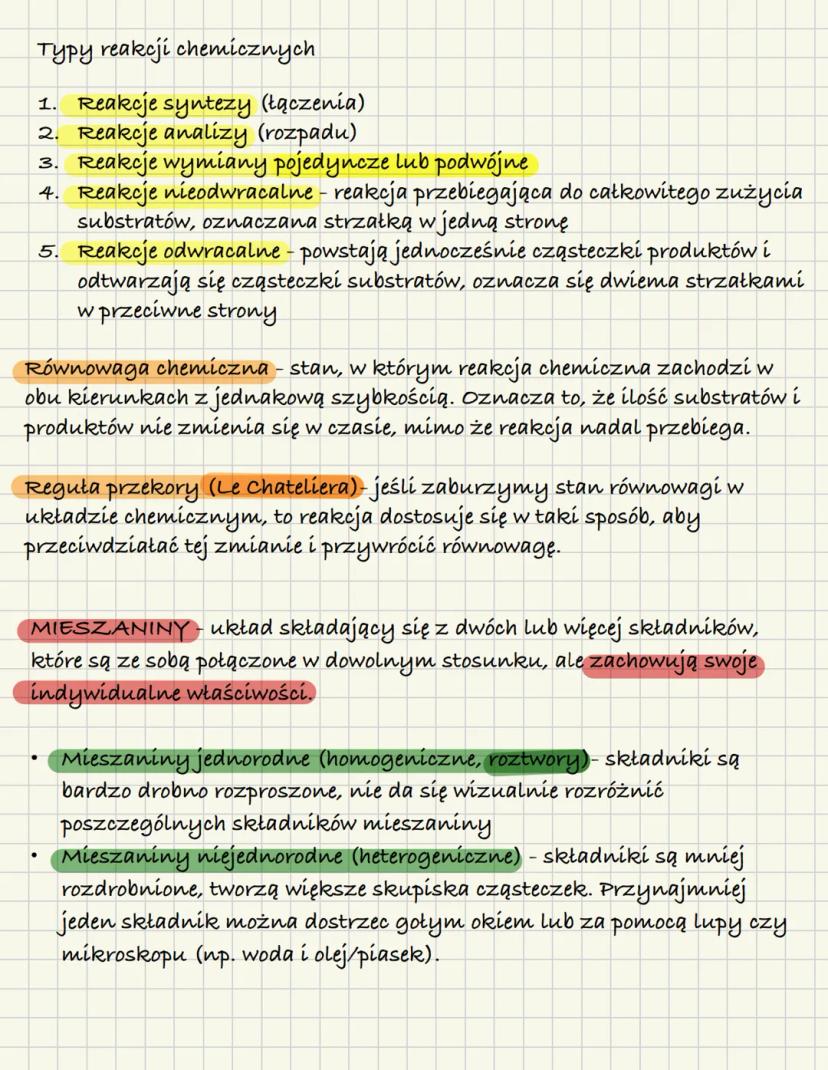 Typy reakcji chemicznych
1. Reakcje syntezy (łączenia)
2. Reakcje analizy (rozpadu)
3. Reakcje wymiany pojedyncze lub podwójne
4. Reakcje nieodwracalne - reakcja przebiegająca do całkowitego zużycia
substratów, oznaczana strzałką w jedną stronę
5. Reakcje odwracalne - powstają jednocześnie cząsteczki produktów i
odtwarzają się cząsteczki substratów, oznacza się dwiema strzałkami
w przeciwne strony
Równowaga chemiczna - stan, w którym reakcja chemiczna zachodzi w
obu kierunkach z jednakową szybkością. Oznacza to, że ilość substratów i
produktów nie zmienia się w czasie, mimo że reakcja nadal przebiega.
Reguła przekory (Le Chateliera) - jeśli zaburzymy stan równowagi w
układzie chemicznym, to reakcja dostosuje się w taki sposób, aby
przeciwdziałać tej zmianie i przywrócić równowagę.
MIESZANINY - układ składający się z dwóch lub więcej składników,
które są ze sobą połączone w dowolnym stosunku, ale zachowują swoje
indywidualne właściwości.
• Mieszaniny jednorodne (homogeniczne, roztwory) - składniki są
bardzo drobno rozproszone, nie da się wizualnie rozróżnić
poszczególnych składników mieszaniny
• Mieszaniny niejednorodne (heterogeniczne) - składniki są mniej
rozdrobnione, tworzą większe skupiska cząsteczek. Przynajmniej
jeden składnik można dostrzec gołym okiem lub za pomocą lupy czy
mikroskopu (np. woda i olej/piasek).